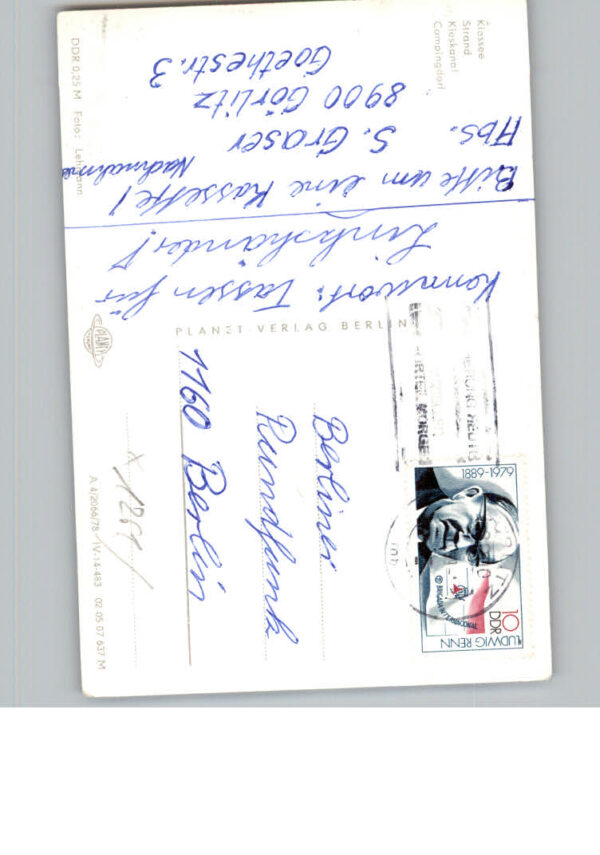 Strand
Campingdorf
Kennwort: Tassen für
Linkshänder!
Bitte um eine Kassette!
Nachnahme
Abs. S. Graser
8900 Görlitz
Goethestr. 3
DDR 0,25 M Foto: Lehmann
PLANET VERLAG BERLIN
PLANET
1889-1979
BRIGADA INTERNACIONAL
10
DDR
LUDWIG RENN
Berliner
Rundfunk
1160 Berlin
A 4/2066/78 IV-14-483 02 05 07 637 M